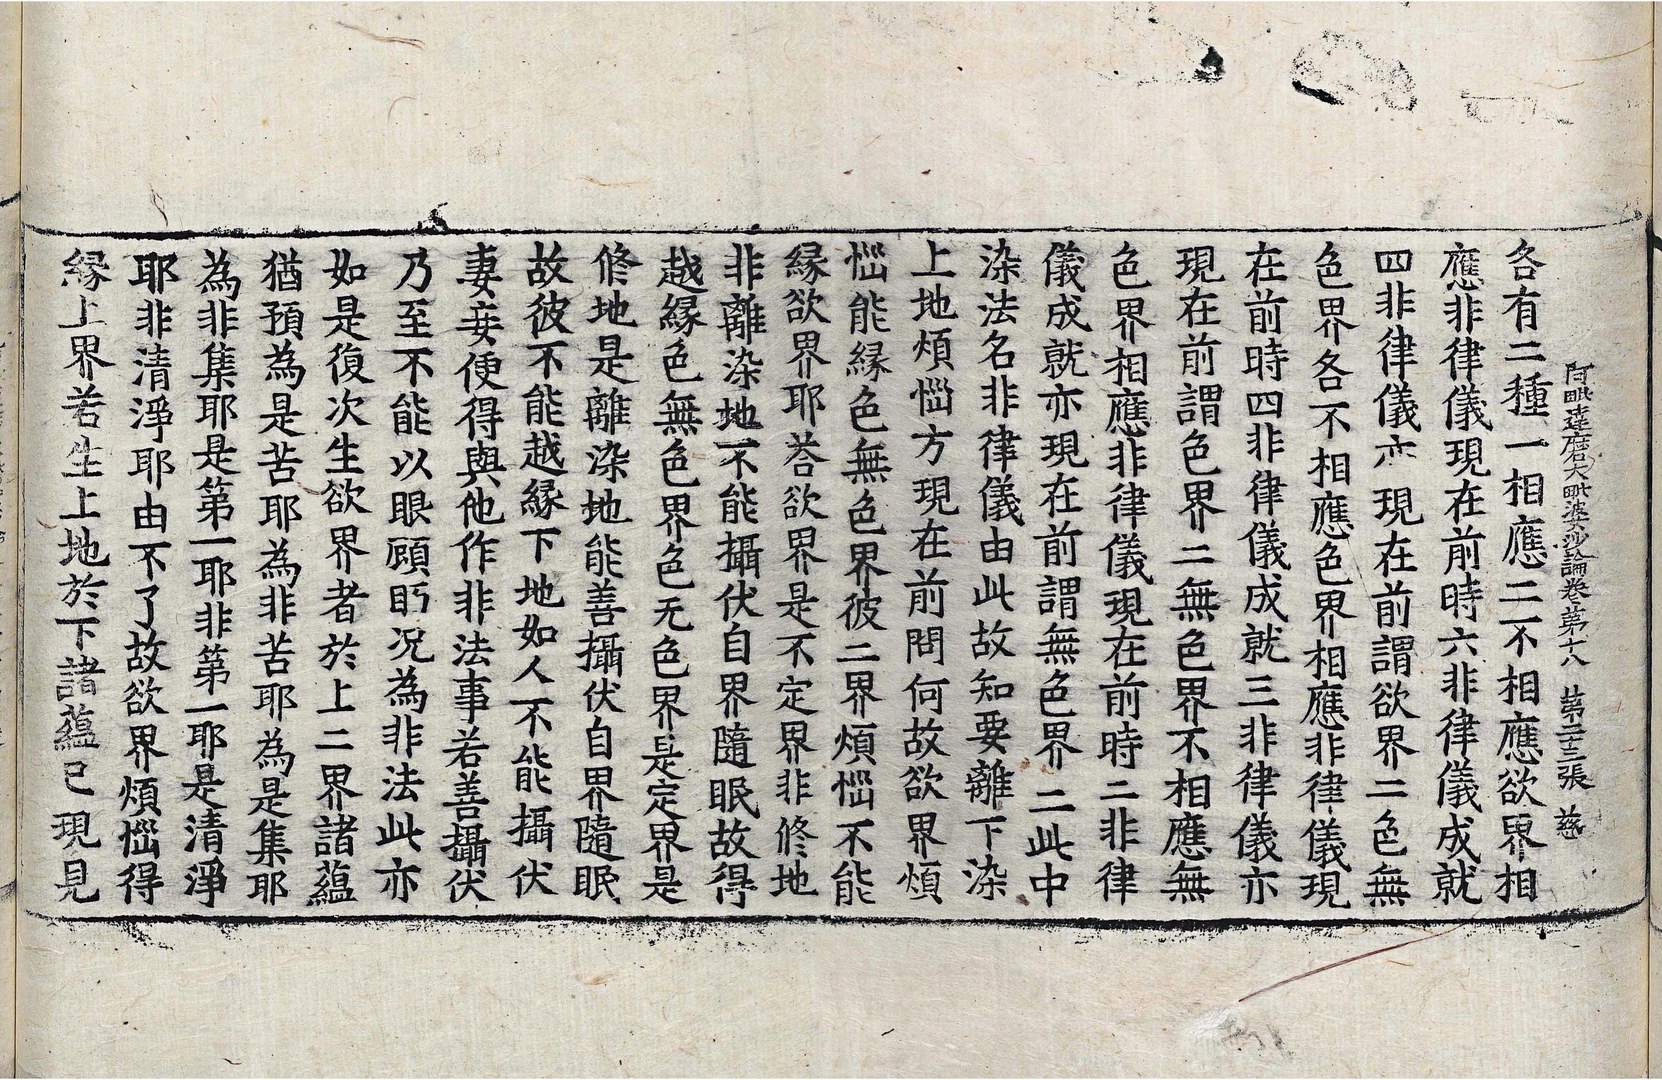 阿毗達磨大毗婆沙論卷第十八　第二十三張　慈
各有二種一相應二不相應欲界相
應非律儀現在前時六非律儀成就
四非律儀亦現在前謂欲界二色無
色界各不相應色界相應非律儀現
在前時四非律儀成就三非律儀亦
現在前謂色界二無色界不相應無
色界相應非律儀現在前時二非律
儀成就亦現在前謂無色界二此中
染法名非律儀由此故知要離下染
上地煩惱方現在前問何故欲界煩
惱能緣色無色界彼二界煩惱不能
緣欲界耶荅欲界是不定界非修地
非離染地不能攝伏自界隨眠故得
越緣色無色界色无色界是定界是
修地是離染地能善攝伏自界隨眠
故彼不能越緣下地如人不能攝伏
妻妾便得與他作非法事若善攝伏
乃至不能以眼顧眄况為非法此亦
如是復次生欲界者於上二界諸蘊
猶預為是苦耶為非苦耶為是集耶
為非集耶是第一耶非第一耶是清淨
耶非清淨耶由不了故欲界煩惱得
緣上界若生上地於下諸蘊已現見